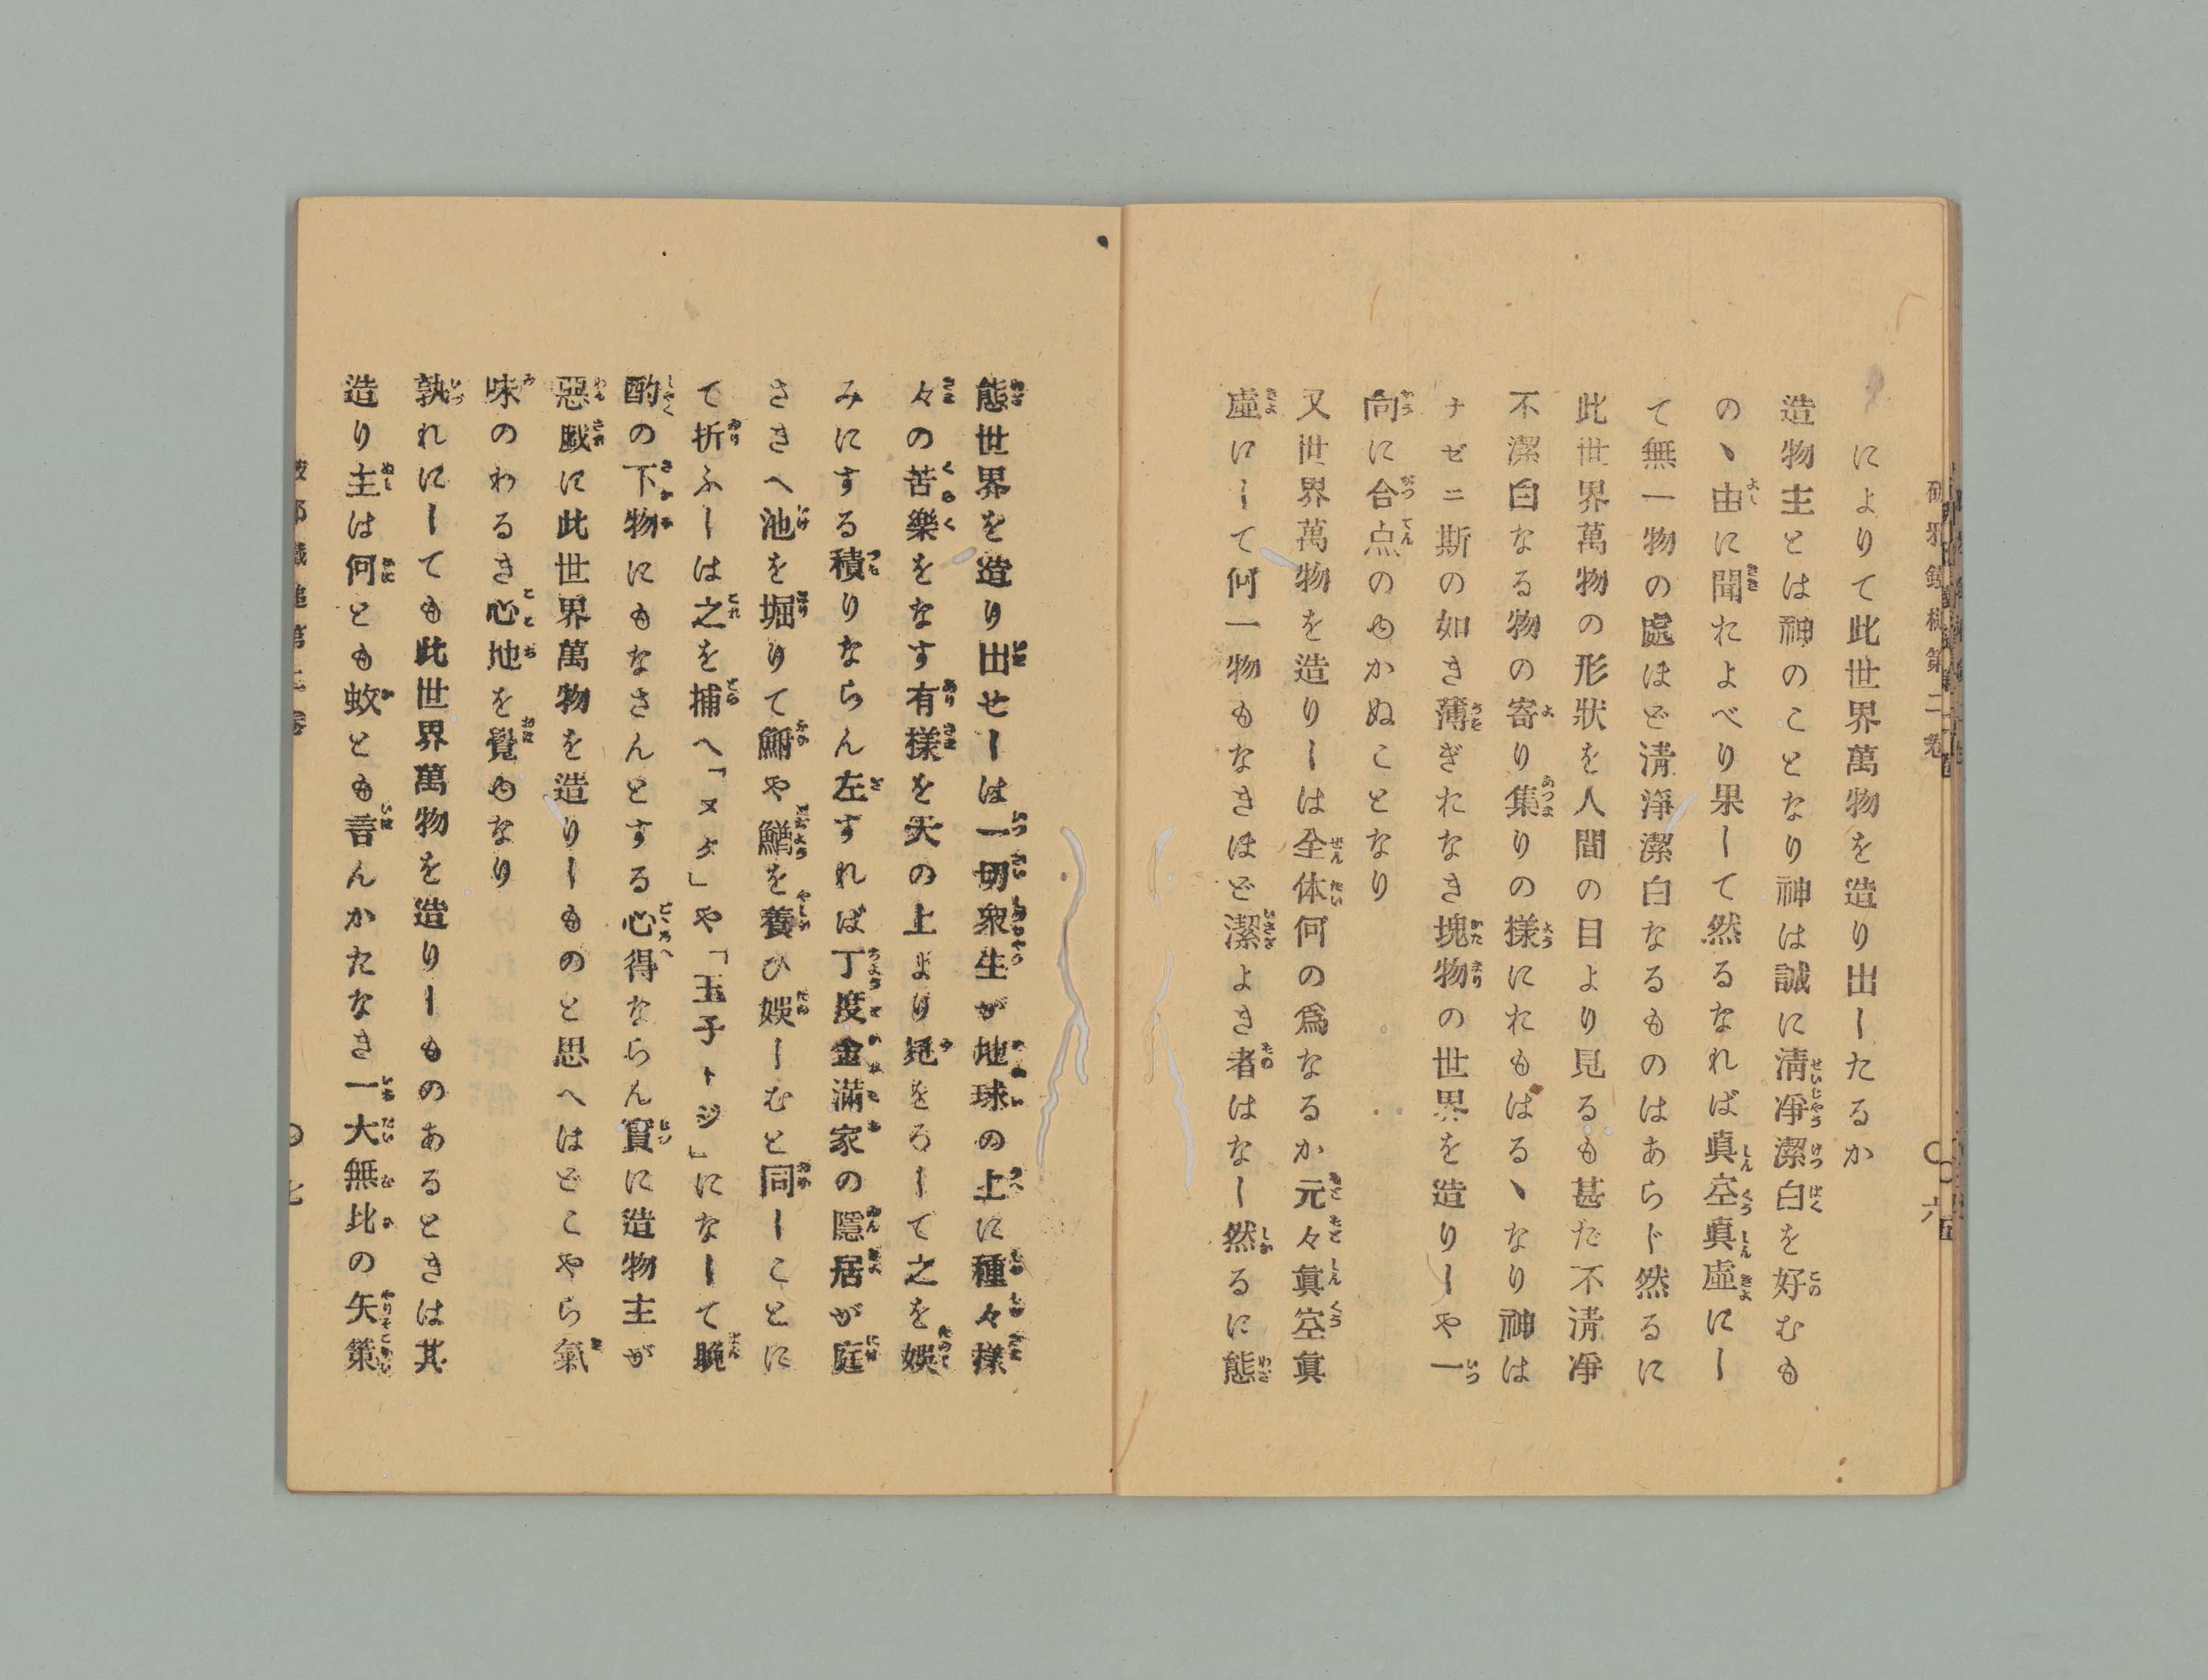 によりて此世界萬物を造り出したるか
造物主とは神のことなり神は誠に淸淨潔白を好むも
のヽ由に聞たよべり果して然るなれば眞空眞虛にし
て無一物の處ほど淸淨潔白なるものはあらド然るに
此世界萬物の形狀を人間の目より見るも甚だ不淸淨
不潔白なる物の寄り集りの樣にれもはるヽなり神は
ナゼニ斯の如き薄ぎたなき塊物の世界を造りしや一
向に合点のゆかぬことなり
又世界萬物を造りしは全体何の爲なるか元々眞空眞
虛にして何一物もなきほど潔よき者はなし然るに態
破邪鐵槌第二卷
〇六
態世界を造り出せしは一切衆生が地球の上に種々樣
々の苦樂をなす有樣を天の上より見をろして之を娯
みにする積りならん左すれば丁度金滿家の隱居が庭
さきへ池を堀りて鮒や鰌を養ひ娯しむと同しことに
て折ふしは之を捕へ「ヌタ」や「玉子トジ」になして晩
酌の下物にもなさんとする心得ならん實に造物主が
惡戯に此世界萬物を造りしものと思へはどこやら氣
味のわるき心地を覺ゆなり
孰れにしても此世界萬物を造りしものあるときは其
造り主は何とも蚊とも言んかたなき一大無比の矢策
〇七